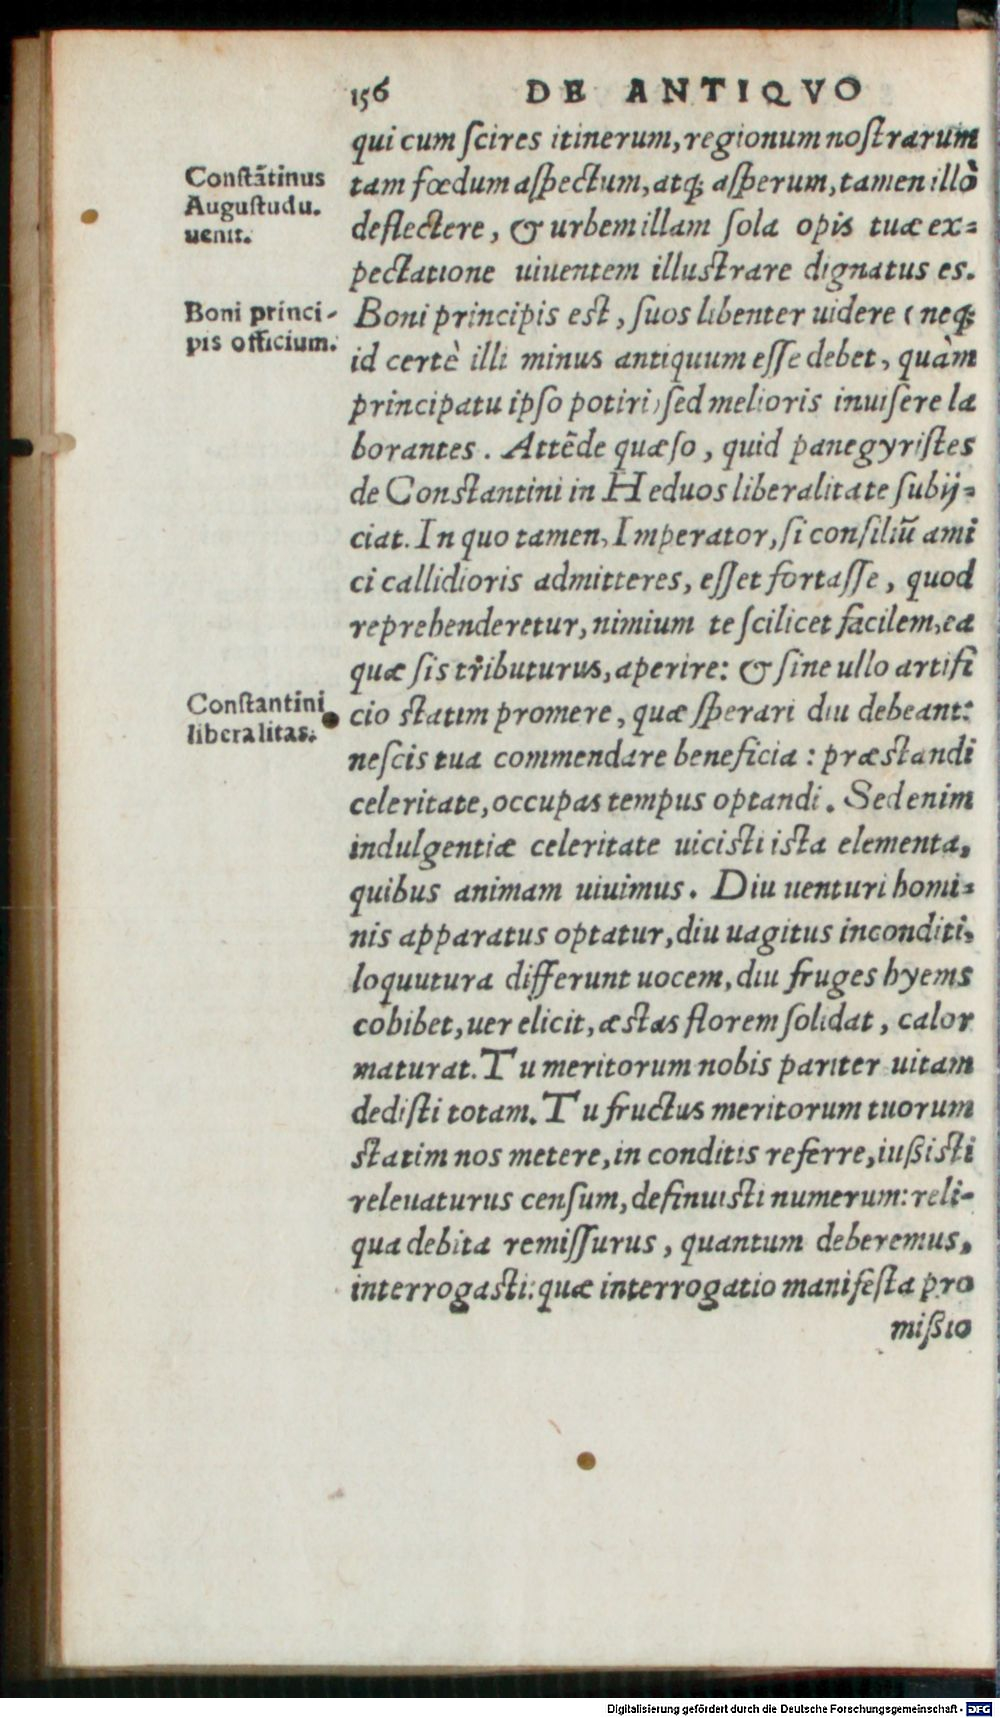 156 DE ANTIQVO
qui cum ſcires itinerum, regionum noſtrarum
Conſtātinus
Auguſtudu.
uenit.
tam fœdum aſpectum, atq; aſperum, tamen illò
deflectere, & urbem illam ſola opis tuæ ex=
pectatione uiuentem illuſtrare dignatus es.
Boni princi-
pis officium.
Boni principis eſt, ſuos libenter uidere (neq;
id certè illi minus antiquum eſſe debet, quàm
principatu ipſo potiri) ſed melioris inuiſere la
borantes. Attēde quæſo, quid panegyriſtes
de Conſtantini in Heduos liberalitate ſubij=
ciat. In quo tamen, Imperator, ſi conſiliū ami
ci callidioris admitteres, eſſet fortaſſe, quod
reprehenderetur, nimium te ſcilicet facilem, ea
quæ ſis tributurus, aperire: & ſine ullo artifi
Conſtantini
liberalitas.
cio ſtatim promere, quæ ſperari diu debeant:
neſcis tua commendare beneficia : præſtandi
celeritate, occupas tempus optandi. Sed enim
indulgentiæ celeritate uiciſti iſta elementa,
quibus animam uiuimus. Diu uenturi homi=
nis apparatus optatur, diu uagitus inconditi,
loquutura differunt uocem, diu fruges hyems
cohibet, uer elicit, æſtas florem ſolidat, calor
maturat. Tu meritorum nobis pariter uitam
dediſti totam. Tu fructus meritorum tuorum
ſtatim nos metere, in conditis referre, iußiſti
releuaturus cenſum, definuiſti numerum: reli-
qua debita remiſſurus, quantum deberemus,
interrogaſti: quæ interrogatio manifeſta pro
mißio
Digitalisierung gefördert durch die Deutsche Forschungsgemeinschaft - DFG